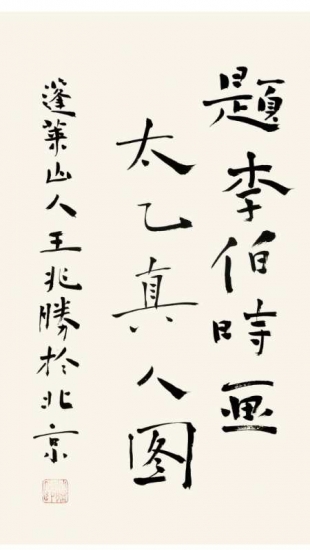 題李伯時画
太乙真人图
蓬莱山人王兆勝於北京